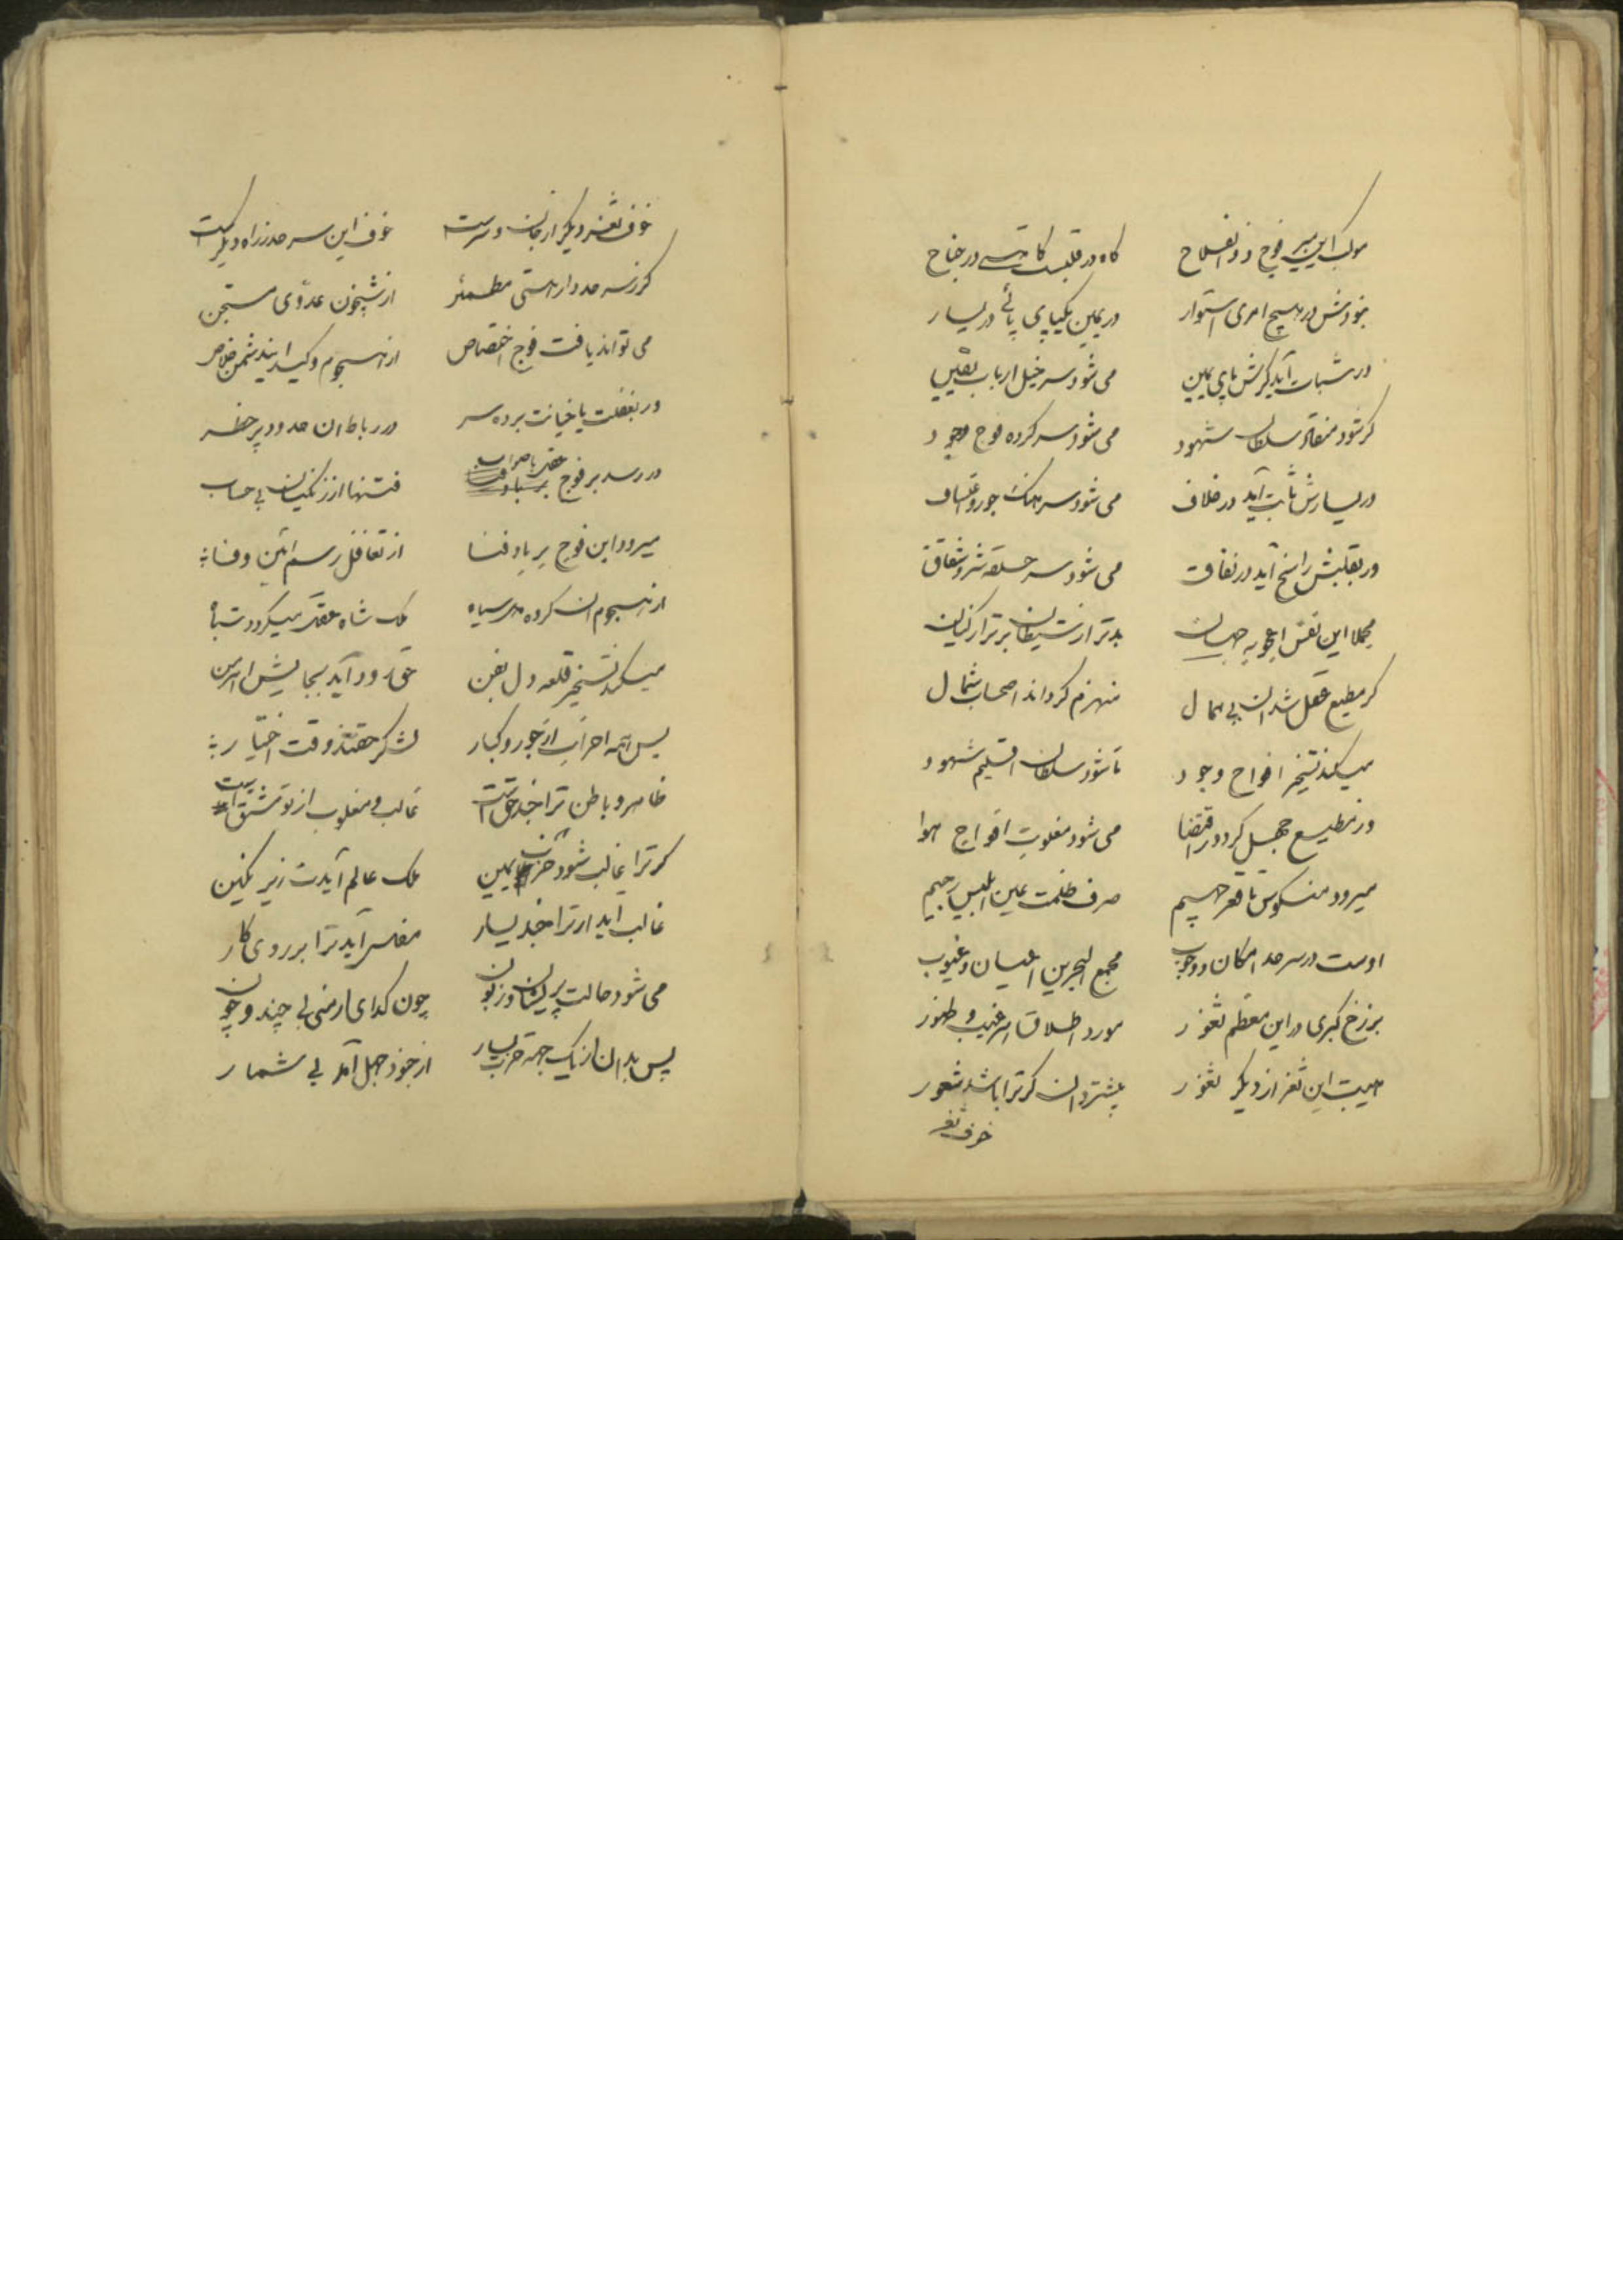 موکب این میر فوج ذو الفلاح گاه در قلبست گاهی در جناح
نبودش در هیچ امری استوار در یمین یکپای پائی در یسار
در ثبات آید گرش پای یمین می شود سر خیل ارباب یقین
گر شود منقاد سلطان شهود می شود سر کرده فوج وجود
در یسارش ثابت آید در خلاف می شود سرهنگ جور و اعتساف
ور بقلبش راسخ آید در نفاق می شود سر حلقه شر و شقاق
مجملا این نفس اعجوبه جهان بدتر از شیطان برتر از کیان
گر مطیع عقل شد آن بی همال منهزم گرداند اصحاب شمال
میکند تسخیر افواج وجود تا شود سلطان اقلیم شهود
ور مطیع جهل گردد ز اقتضا می شود مغلوب افواج هوا
میرود منکوس تا قعر جحیم صرف ظلمت عین ابلیس رجیم
اوست در سرحد امکان و وجوب مجمع البحرین اعیان و غیوب
برزخ کبری در این معظم ثغور مورد اطلاق اسم غیب و ظهور
اهیبت این ثغر از دیگر ثغور بیشتر دان گر ترا باشد شعور
خوف ثغر
خوف ثغر دیگر از جان و سرست خوف این سرحد ز راه دیگر است
گر ز سرحد دار هستی مطمئن از شبیخون عدوی مستجن
می تواند یافت فوج اختصاص از هجوم و کید این دشمن خلاص
ور بغفلت یا خیانت برده سر در رباط آن حدود پر خطر
در رسد بر فوج عقل با صواب فتنها از زنگیان بی حساب
میرود این فوج بر باد فنا از تغافل رسم آئین وفا
از هجوم آن گروه دل سیاه ملک شاه عقل میگردد تباه
میکند تسخیر قلعه دل بفن حق رود آید بجایش اهرمن
پس همه احزاب از خورد و کبار لشکر حقند وقت اختیار
ظاهر و باطن ترا جند حق است غالب و مغلوب از تو مشتق است
گر ترا غالب شود حزب یمین ملک عالم آیدت زیر نگین
غالب آید ار ترا جند یسار مفلسی آید ترا بر روی کار
می شود حالت پریشان و زبون چون گدای ارمنی بی چند و چون
پس بدان از یک جهة حزب یسار از جنود جهل آمد بی شمار